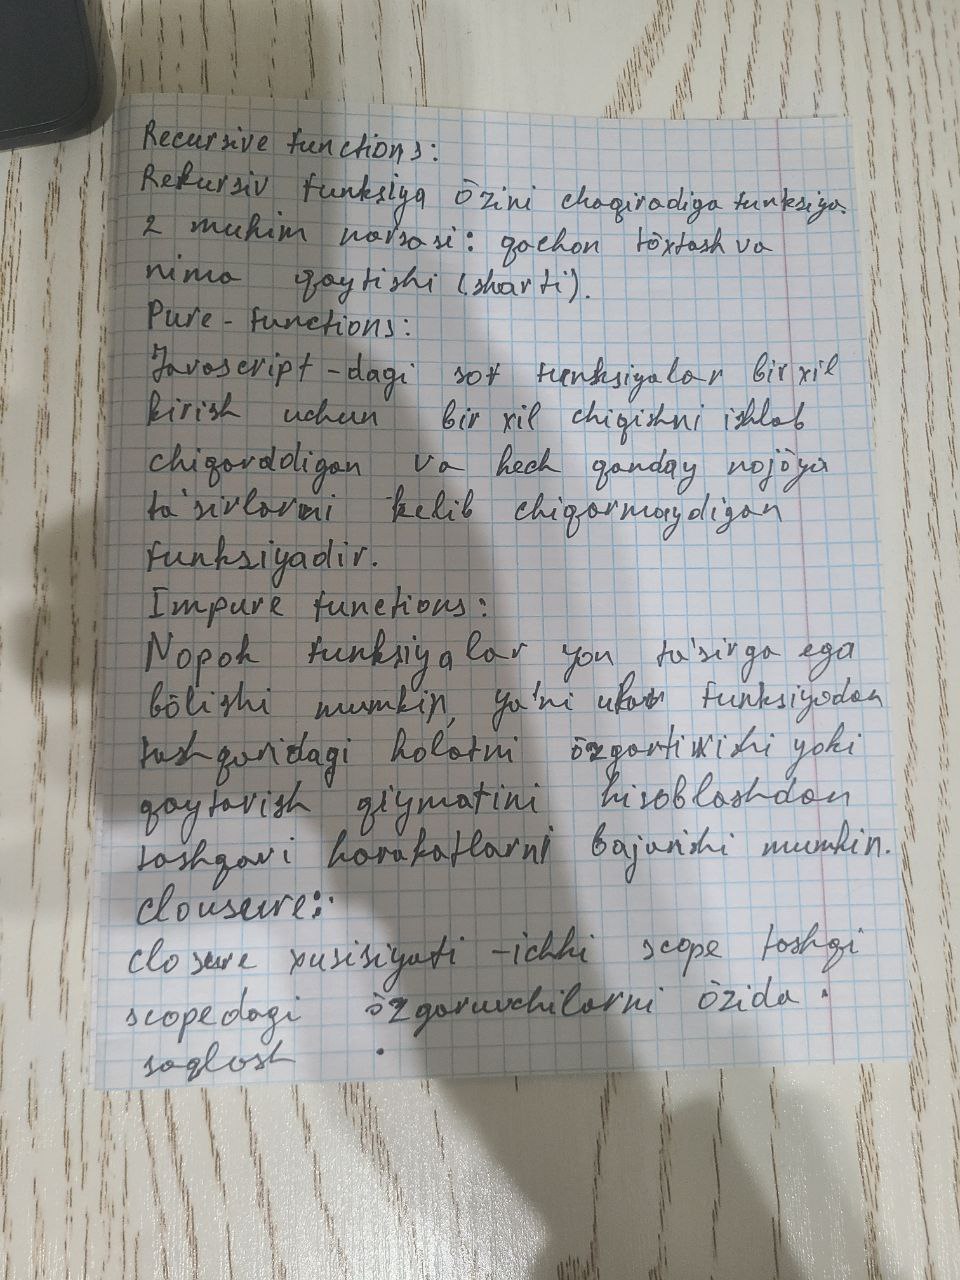 Recursive functions:
Rekursiv funksiya õzini chaqiradiga funksiya.
2 muhim narsasi: qachon tõxtash va
nima qaytishi (sharti).
Pure-functions:
Javascript-dagi sof funksiyalar bir xil
kirish uchun bir xil chiqishni ishlab
chiqaraddigan va hech qanday nojõya
ta'sirlarni kelib chiqarmaydigan
funksiyadir.
Impure functions:
Nopok funksiyalar yon ta'sirga ega
bõlishi mumkin, ya'ni ular funksiyadan
tashqaridagi holatni õzgartirishi yoki
qaytarish qiymatini hisoblashdan
tashqari harakatlarni bajarishi mumkin.
Clousure:
closure xusisiyati - ichki scope tashqi
scopedagi õzgaruvchilarni õzida
saqlash .